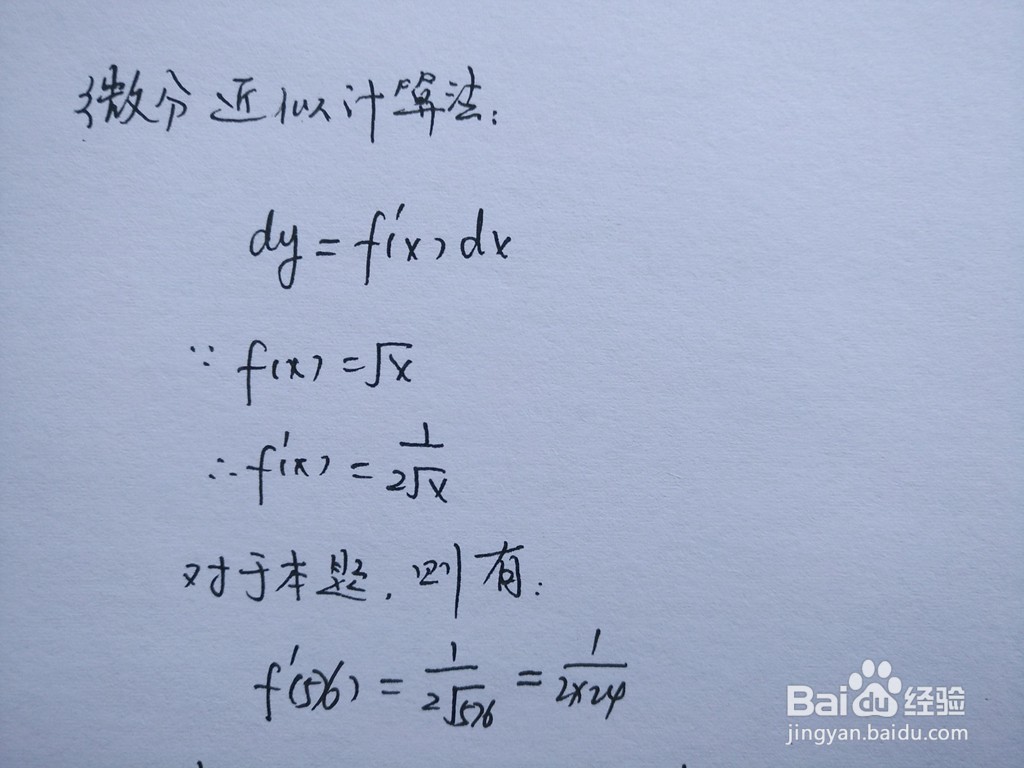 微分近似计算法:
dy = f'(x) dx
∵ f(x) = √x
∴ f'(x) = 1/(2√x)
对于本题,则有:
f'(576) = 1/(2√576) = 1/(2×24)
Baidu经验
jingyan.baidu.com